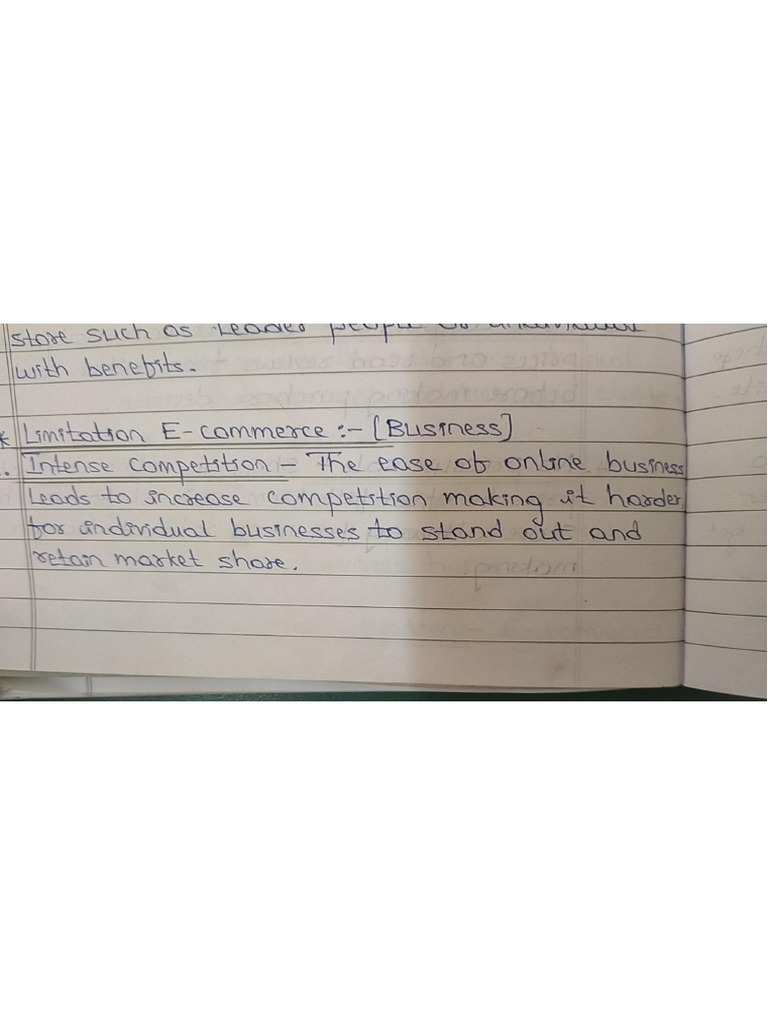 store such as
with benefits.
* Limitation E-commerce :- [Business]
. Intense Competition - The ease of online business
leads to increase competition making it harder
for individual businesses to stand out and
retain market share.